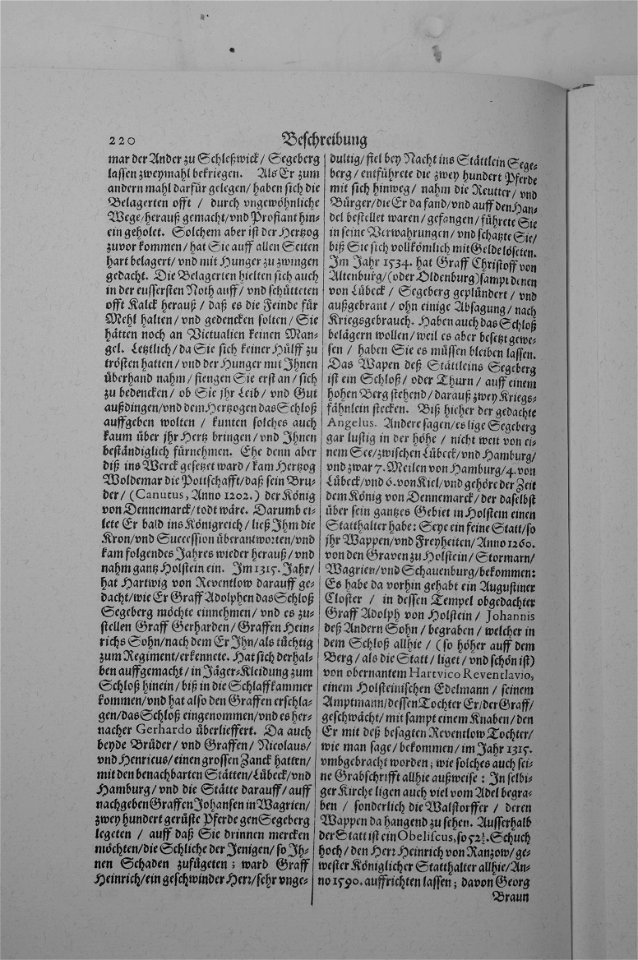 220
Beschreibung
mar der Ander zu Schleßwick/ Segeberg
lassen zweymahl bekriegen. Als Er zum
andern mahl darfür gelegen/ haben sich die
Belagerten offt / durch vngewöhnliche
Wege/ herauß gemacht/ vnd Profiant hin-
ein geholet. Solchem aber ist der Hertzog
zuvor kommen/ hat Sie auff allen Seiten
hart belagert/ vnd mit Hunger zu zwingen
gedacht. Die Belagerten hielten sich auch
in der eussersten Noth auff/ vnd schütteten
offt Kalck herauß / daß es die Feinde für
Mehl halten/ vnd gedencken solten/ Sie
hätten noch an Victualien keinen Man-
gel. Letzlich/ da Sie sich keiner Hülff zu
trösten hatten/ vnd der Hunger mit Ihnen
überhand nahm/ fiengen Sie erst an/ sich
zu bedencken / ob Sie jhr Leib / vnd Gut
außdingen/ vnd dem Hertzogen das Schloß
auffgeben wolten / kunten solches auch
kaum über jhr Hertz bringen/ vnd Ihnen
beständiglich fürnehmen. Ehe denn aber
diß ins Werck gesetzet ward / kam Hertzog
Woldemar die Pottschafft/ daß sein Bru-
der / (Canutus, Anno 1202.) der König
von Dennemarck/ todt wäre. Darumb ei-
lete Er bald ins Königreich / ließ Ihm die
Kron/ vnd Succession überantworten/ vnd
kam folgendes Jahres wieder herauß/ vnd
nahm gantz Holstein ein. Im 1315. Jahr/
hat Hartwig von Reventlow darauff ge-
dacht/ wie Er Graff Adolphen das Schloß
Segeberg möchte einnehmen / vnd es zu-
stellen Graff Gerharden/ Graffen Hein-
richs Sohn/ nach dem Er Ihn/ als tüchtig
zum Regiment/ erkennete. Hat sich derhal-
ben auffgemacht / in Jäger-Kleidung zum
Schloß hinein/ biß in die Schlaffkammer
kommen/ vnd hat also den Graffen erschla-
gen/ das Schloß eingenommen/ vnd es her-
nacher Gerhardo überlieffert. Da auch
beyde Brüder/ vnd Graffen / Nicolaus/
vnd Henricus/ einen grossen Zanck hatten/
mit den benachbarten Stätten/ Lübeck/ vnd
Hamburg / vnd die Stätte darauff / auff
nachgeben Graffen Johansen in Wagrien/
zwey hundert gerüste Pferde gen Segeberg
legeten / auff daß Sie drinnen mercken
möchten/ die Schliche der Jenigen/ so Ih-
nen Schaden zufügeten; ward Graff
Heinrich/ ein geschwinder Herr/ sehr vnge-
dultig/ fiel bey Nacht ins Stättlein Sege-
berg/ entführete die zwey hundert Pferde
mit sich hinweg/ nahm die Reutter / vnd
Bürger/ die Er da fand/ vnd auff den Han-
del bestellet waren/ gefangen/ führete Sie
in seine Verwahrungen/ vnd schatzte Sie/
biß Sie sich vollkömlich mit Gelde löseten.
Im Jahr 1534. hat Graff Christoff von
Altenburg/ (oder Oldenburg) sampt denen
von Lübeck / Segeberg geplündert / vnd
außgebrant/ ohn einige Absagung/ nach
Kriegsgebrauch. Haben auch das Schloß
belägern wollen/ weil es aber besetzt gewe-
sen / haben Sie es müssen bleiben lassen.
Das Wapen deß Stättleins Segeberg
ist ein Schloß/ oder Thurn/ auff einem
hohen Berg stehend/ darauß zwey Kriegs-
fähnlein stecken. Biß hieher der gedachte
Angelus. Andere sagen/ es lige Segeberg
gar lustig in der höhe / nicht weit von ei-
nem See/ zwischen Lübeck/ vnd Hamburg/
vnd zwar 7. Meilen von Hamburg/ 4. von
Lübeck/ vnd 6. von Kiel/ vnd gehöre der Zeit
dem König von Dennemarck/ der daselbst
über sein gantzes Gebiet in Holstein einen
Statthalter habe: Seye ein feine Statt/ so
jhr Wappen/ vnd Freyheiten/ Anno 1260.
von den Graven zu Holstein/ Stormarn/
Wagrien/ vnd Schauenburg/ bekommen:
Es habe da vorhin gehabt ein Augustiner
Closter / in dessen Tempel obgedachter
Graff Adolph von Holstein / Johannis
deß Andern Sohn/ begraben/ welcher in
dem Schloß allhie / (so höher auff dem
Berg / als die Statt / liget / vnd schön ist)
von obernantem Hartvico Reventlavio,
einem Holsteinischen Edelmann / seinem
Amptmann/ dessen Tochter Er/ der Graff/
geschwächt/ mit sampt einem Knaben/ den
Er mit deß besagten Reventlow Tochter/
wie man sage/ bekommen/ im Jahr 1315.
vmbgebracht worden; wie solches auch sei-
ne Grabschrifft allhie außweise: In selbi-
ger Kirche ligen auch viel vom Adel begra-
ben / sonderlich die Walstorffer / deren
Wappen da hangend zu sehen. Ausserhalb
der Statt ist ein Obeliscus, so 52½. Schuch
hoch/ den Herr Heinrich von Ranzow/ ge-
wester Königlicher Statthalter allhie/ An-
no 1590. auffrichten lassen; davon Georg
Braun